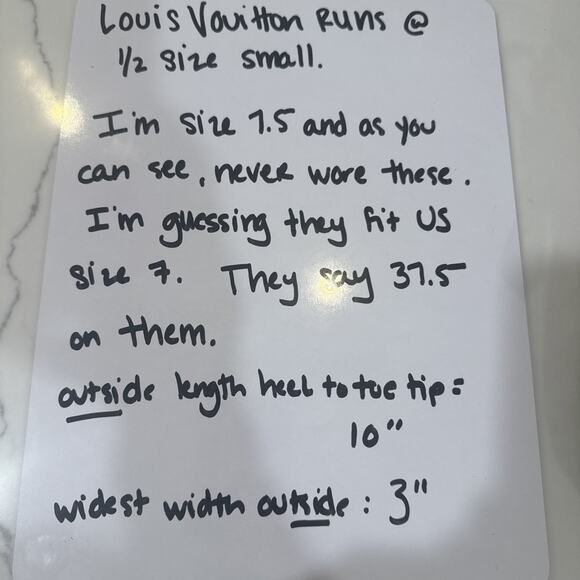 Louis Vouitton Runs @
1/2 size small.
I'm size 7.5 and as you
can see, never wore these.
I'm guessing they fit US
size 7. They say 37.5
on them.
outside length heel to toe tip =
10"
widest width outside : 3"